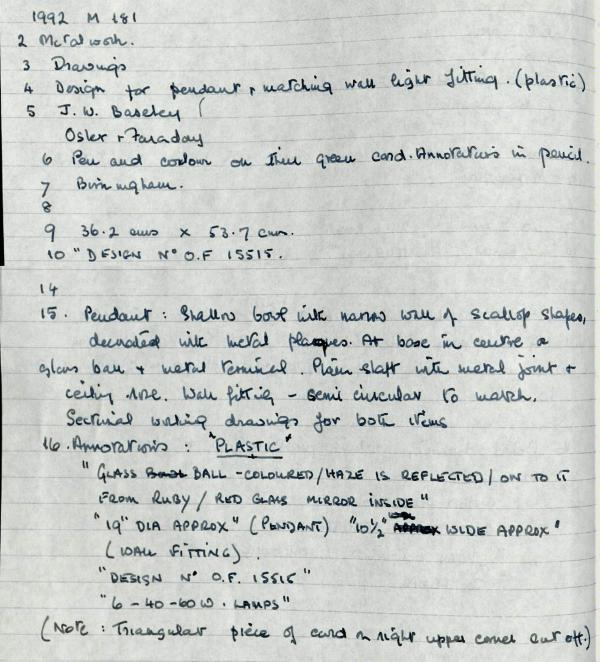 1992 M 181
2 Metalwork.
3 Drawings
4 Design for pendant + matching wall light fitting. (plastic)
5 J. W. Baseley (
Osler + Faraday
6 Pen and colour on thin green card. Annotations in pencil.
7 Birmingham.
8
9 36.2 cms x 53.7 cm.
10 "DESIGN No O.F 15515.
14
15. Pendant : Shallow bowl with narrow wall of scallop shapes,
decorated with metal plaques. At base in centre a
glass ball + metal terminal. Plain shaft with metal joint +
ceiling rose. Wall fitting - semi circular to match.
Sectional working drawings for both items
16. Annotations : "PLASTIC"
"GLASS BALL - COLOURED / HAZE IS REFLECTED / ON TO IT
FROM RUBY / RED GLASS MIRROR INSIDE"
"19" DIA APPROX" (PENDANT) "10½" WIDE APPROX"
(WALL FITTING).
"DESIGN No O.F. 15515"
"6 - 40 - 60 W. LAMPS"
(Note : Triangular piece of card on right upper corner cut off.)